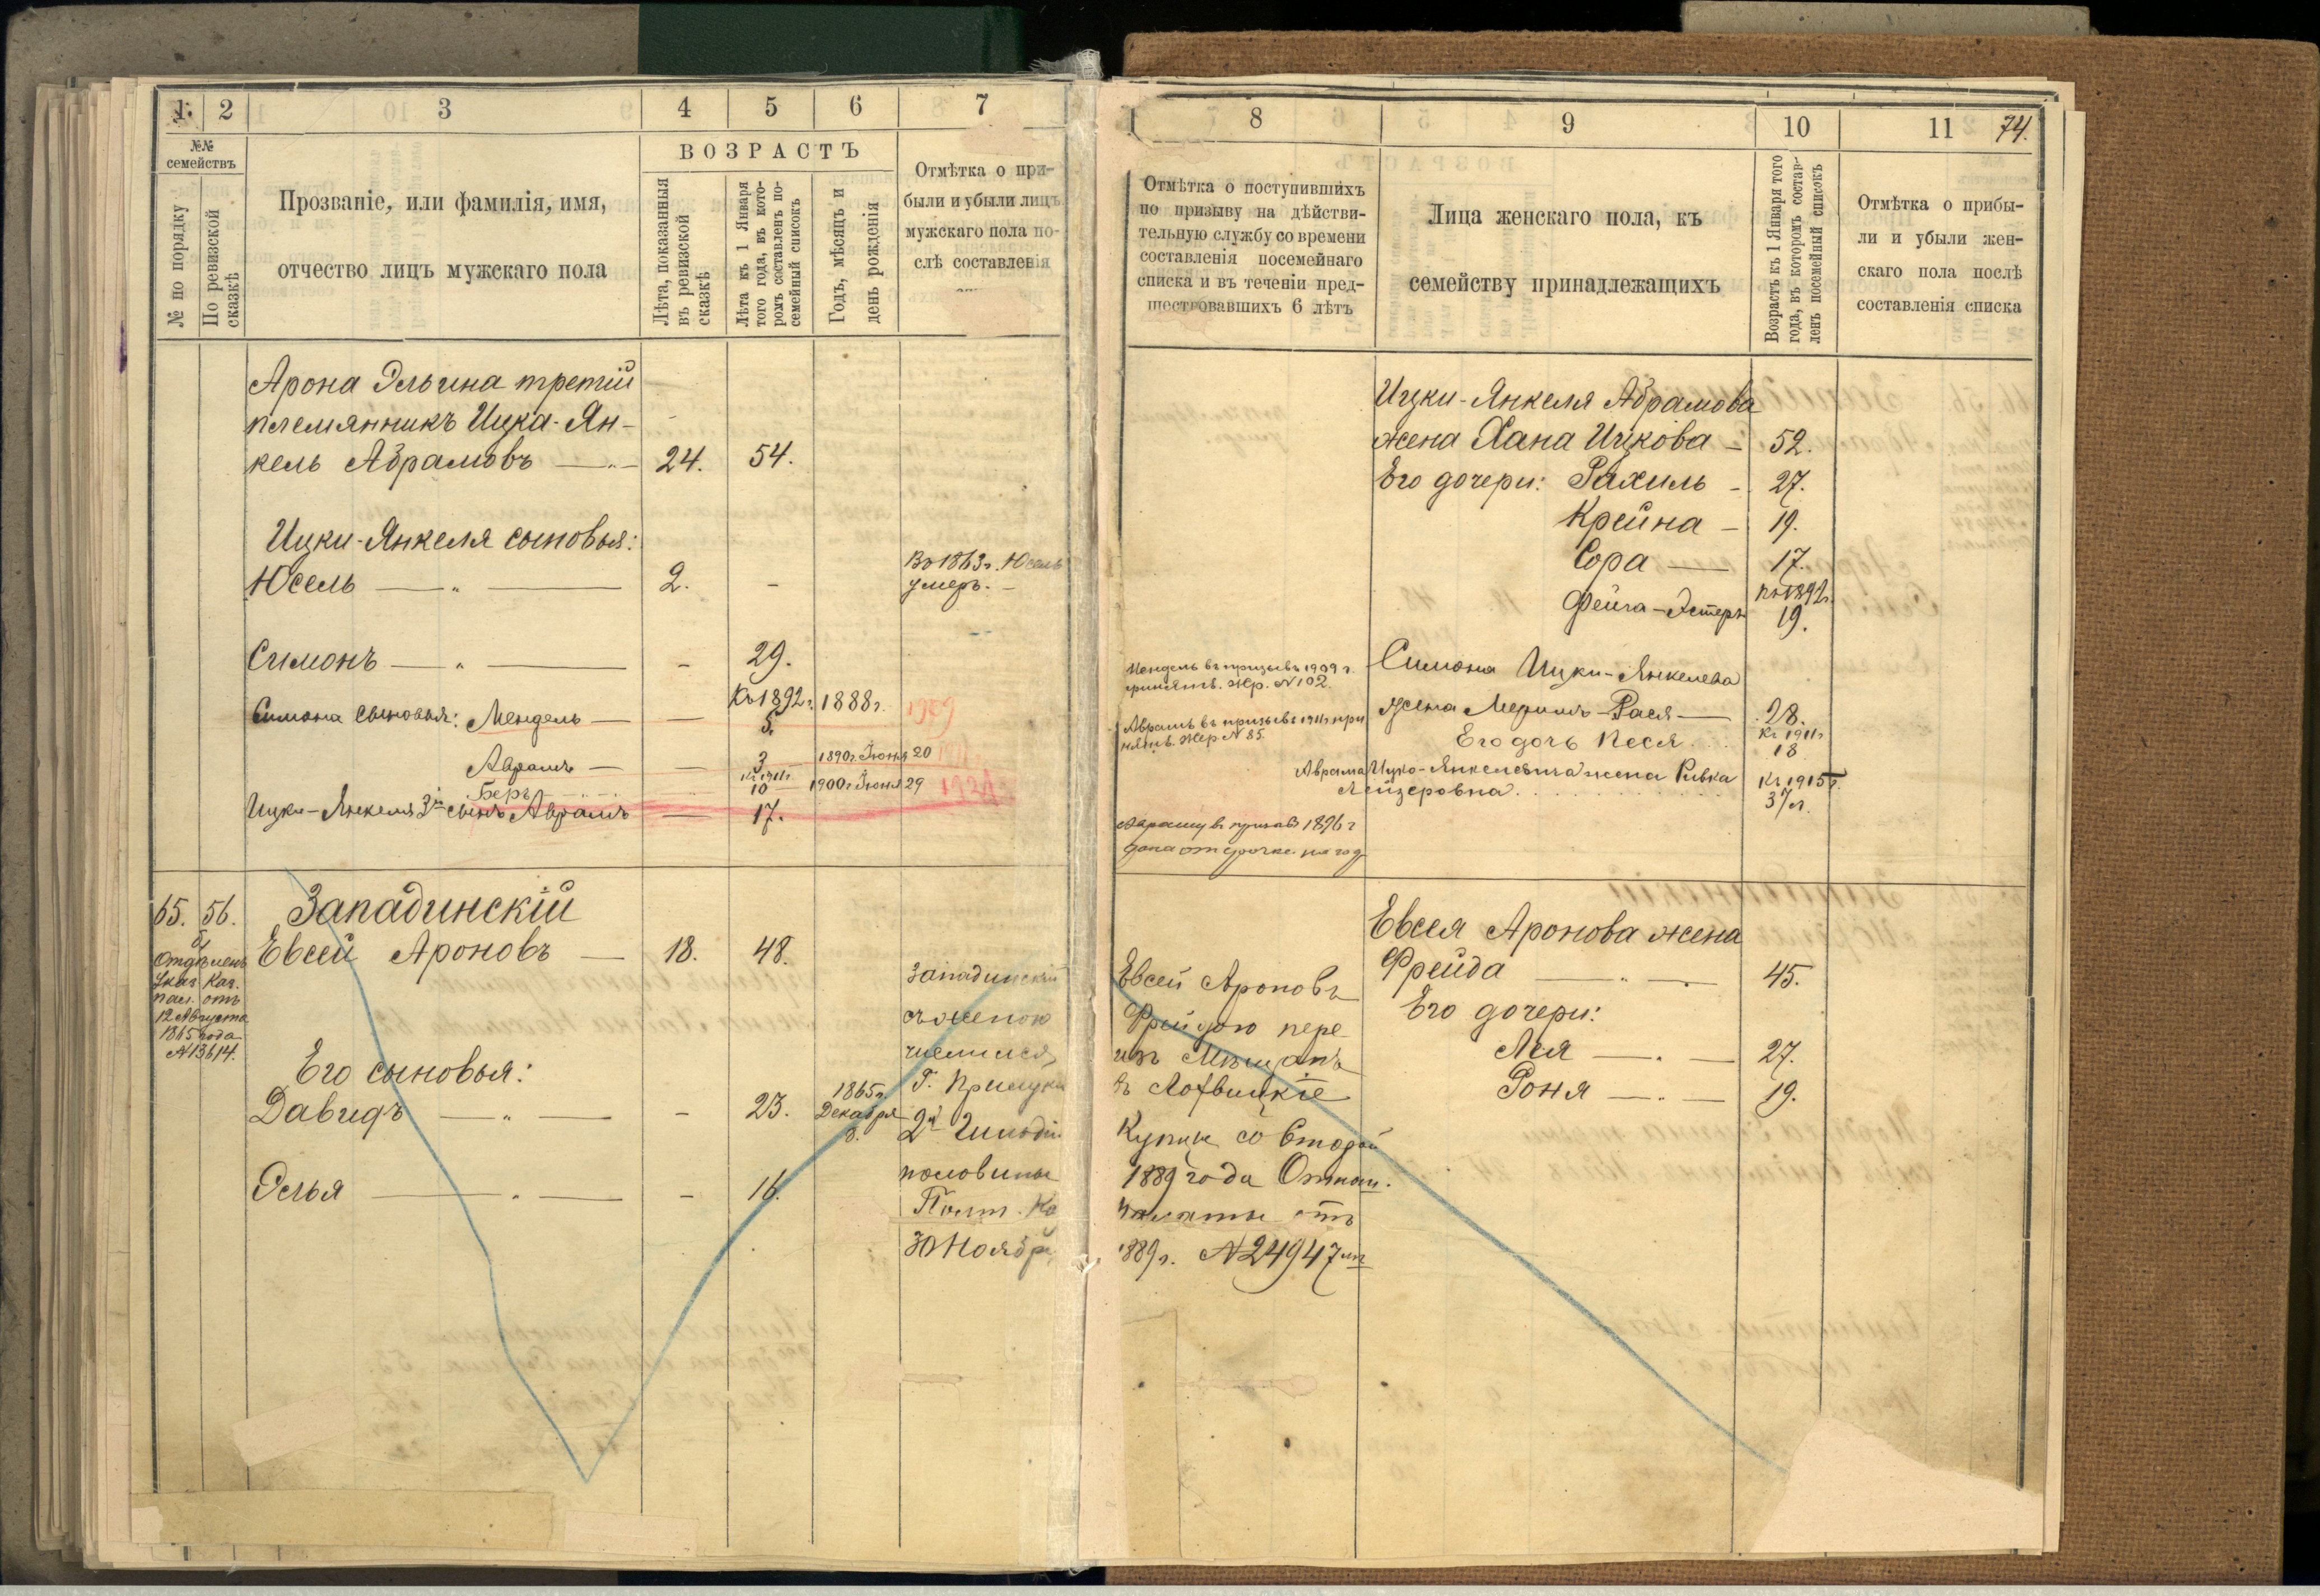 1. 2 3 4 5 6 7
№№ семействъ
№ по порядку
По ревизской сказкѣ
Прозваніе, или фамилія, имя,
отчество лицъ мужскаго пола
ВОЗРАСТЪ
Лѣта, показанныя
въ ревизской
сказкѣ
Лѣта къ 1 Января
того года, въ кото-
ромъ составленъ по-
семейный списокъ
Годъ, мѣсяцъ и
день рожденія
Отмѣтка о при-
были и убыли лицъ
мужскаго пола по-
слѣ составленія
Арона Эльина третій
племянникъ Ицка-Ян-
кель Абрамовъ — 24. 54.
Ицки-Янкеля сыновья:
Юсель — 2. -
Въ 1863 г. Юсель
умеръ. -
Симонъ — - 29.
Симона сыновья: Мендель — — Къ 1892 г. 5. 1888 г. 1909
Абрамъ — — 3 1890 г. Іюня 20 1911
Беръ Къ 1911 г. 10 1900 г. Іюня 29 1921
Ицки-Янкеля 3й сынъ Абрамъ — 17.
65. 56. Западинскій
Евсей Ароновъ — 18. 48.
б)
Отдѣленъ
Указ. Каз.
пал. отъ
12 Августа
1865 года
№13614.
Его сыновья:
Давидъ — - 23. 1865 г.
Декабря
8.
Элья — - 16.
Западинскій
съ женою
числился
Г. Прилуки
2й Гильдіи
половины
Полт. Ка
30 Ноября
8 9 10 11 74.
Отмѣтка о поступившихъ
по призыву на дѣйстви-
тельную службу со времени
составленія посемейнаго
списка и въ теченіи пред-
шествовавшихъ 6 лѣтъ
Лица женскаго пола, къ
семейству принадлежащихъ
Возрастъ къ 1 Января того
года, въ которомъ состав-
ленъ посемейный списокъ
Отмѣтка о прибы-
ли и убыли жен-
скаго пола послѣ
составленія списка
Ицки-Янкеля Абрамова
жена Хана Ицкова — 52.
Его дочери: Рахиль - 27.
Крейна — 19.
Сора — 17.
Фейга-Эстеръ Къ 1892 г. 19.
Мендель въ призывъ 1909 г.
принятъ. Жр. №102.
Симона Ицки-Янкелева
жена Мериамъ-Рася — 28.
Абрамъ въ призывъ 1911 г. при
нятъ. Жер №85.
Его дочь Песя Къ 1911 г. 18
Абрама Ицко-Янкелевича жена Ривка
Лейзеровна Къ 1915 г.
37 л.
Абраму въ призывъ 1896 г
дана отсрочка на год
Евсея Аронова жена
Фрейда — 45.
Его дочери:
Лея — 27.
Роня — 19.
Евсей Ароновъ
Фрейдою пере
изъ Мѣщанъ
въ Лохвицкіе
Купцы со Второй
1889 года Отнош.
палаты отъ
1889 г. №24947